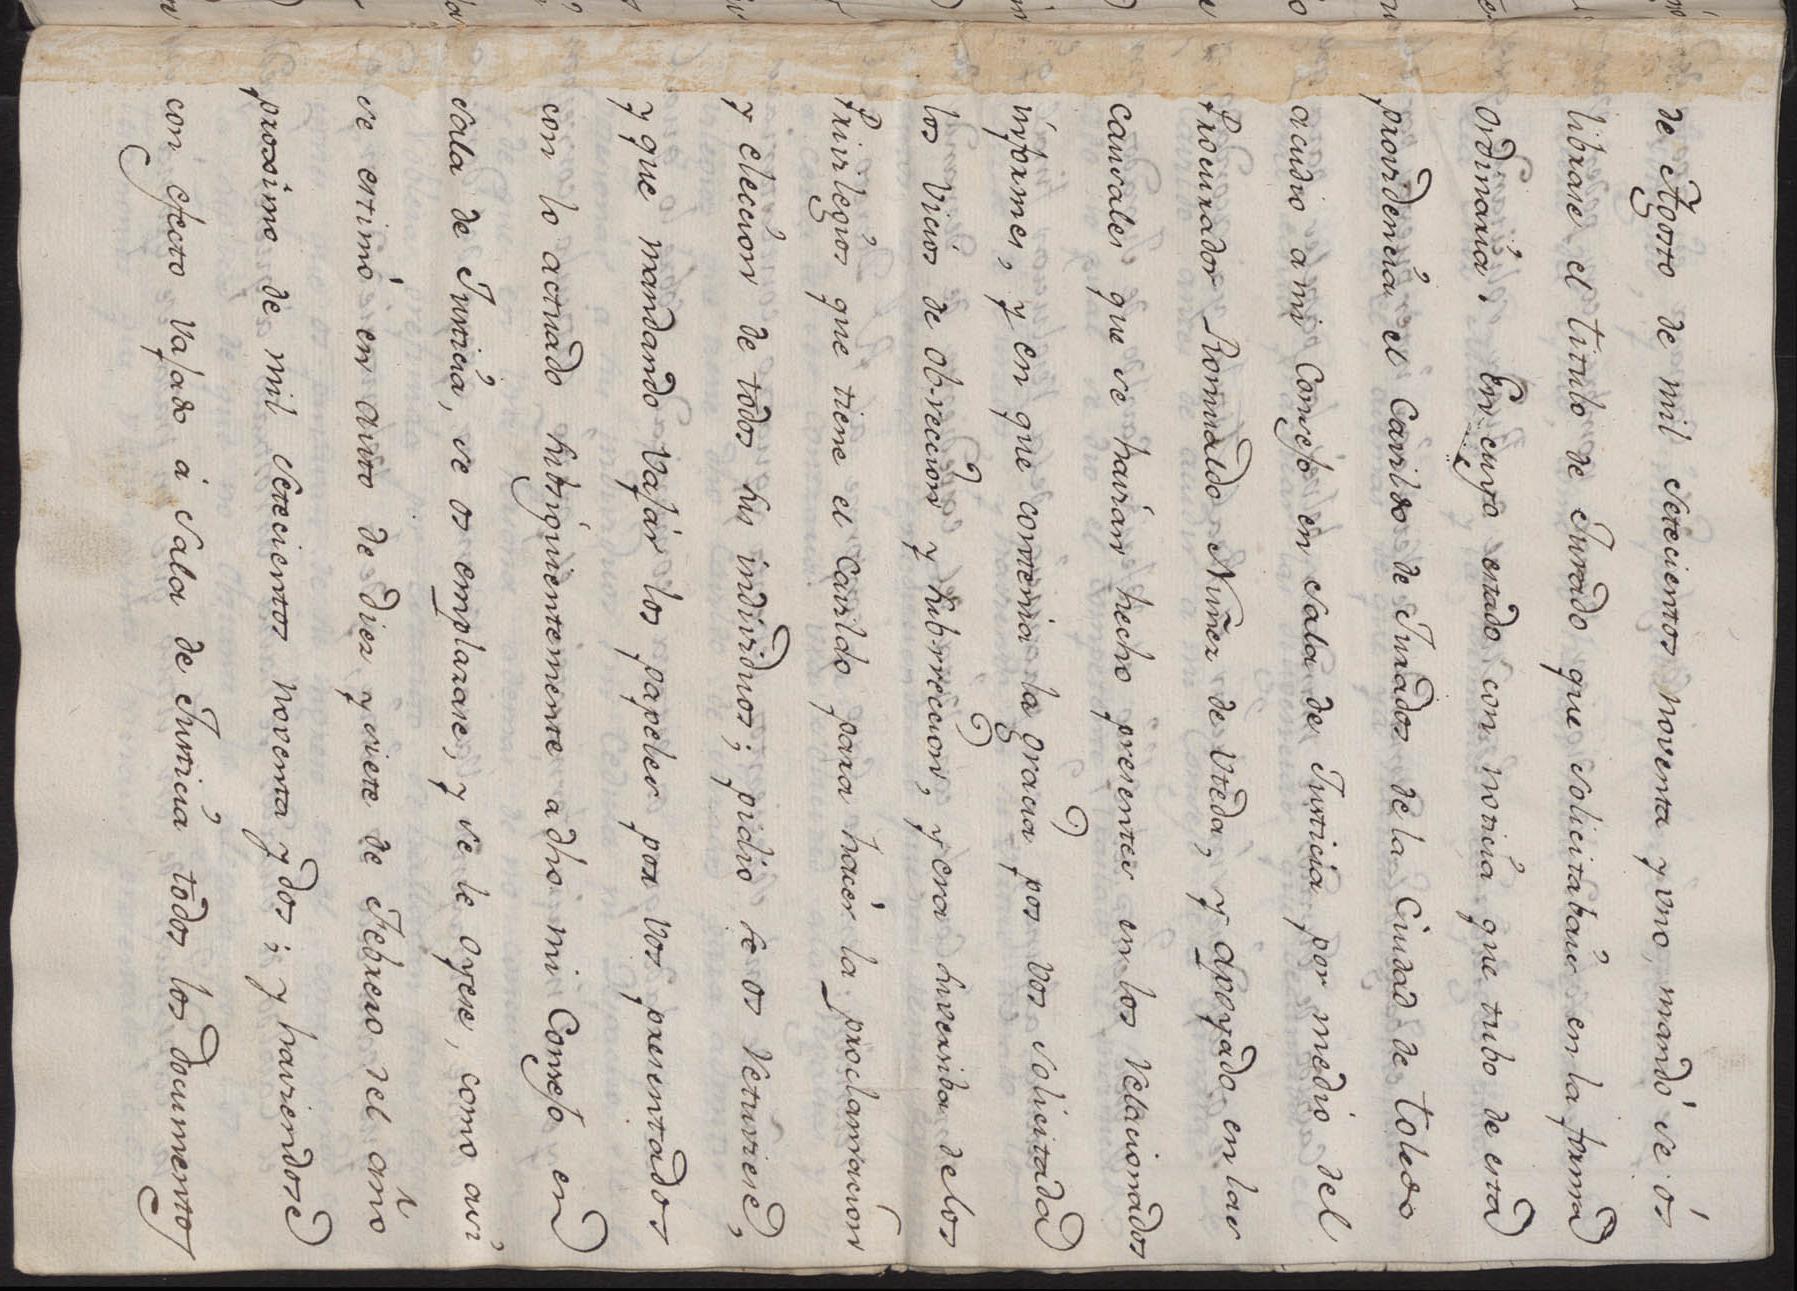 de Agosto de mil setecientos noventa y uno, mandó se ós
librase el titulo de Jurado que solicitabais en la forma
ordinaria. En cuyo estado con noticia que tubo de esta
providencia el Cavildo de Jurados de la Ciudad de Toledo
acudio a mi Consejo en sala de Justicia por medio del
Procurador Romualdo Nuñez de Uceda, y apoyado en las
causales que se havian hecho presentes en los relacionados
informes, y en que contenia la gracia por vos solicitada
los vicios de ob-rección y sub-rrección, y era subversiba de los
Privilegios que tiene el Cavildo para hacer la proclamación
y elección de todos sus individuos; pidio se os retuviese,
y que mandando vajar los papeles por vos presentados
con lo actuado subsiguientemente a dho mi Consejo en
sala de Justicia, se os emplazase, y se le oyese, como asi
se estimó en auto de diez y siete de Febrero del año
prossimo de mil setecientos noventa y dos; y haviendose
con efecto vajado á sala de Justicia todos los documentos